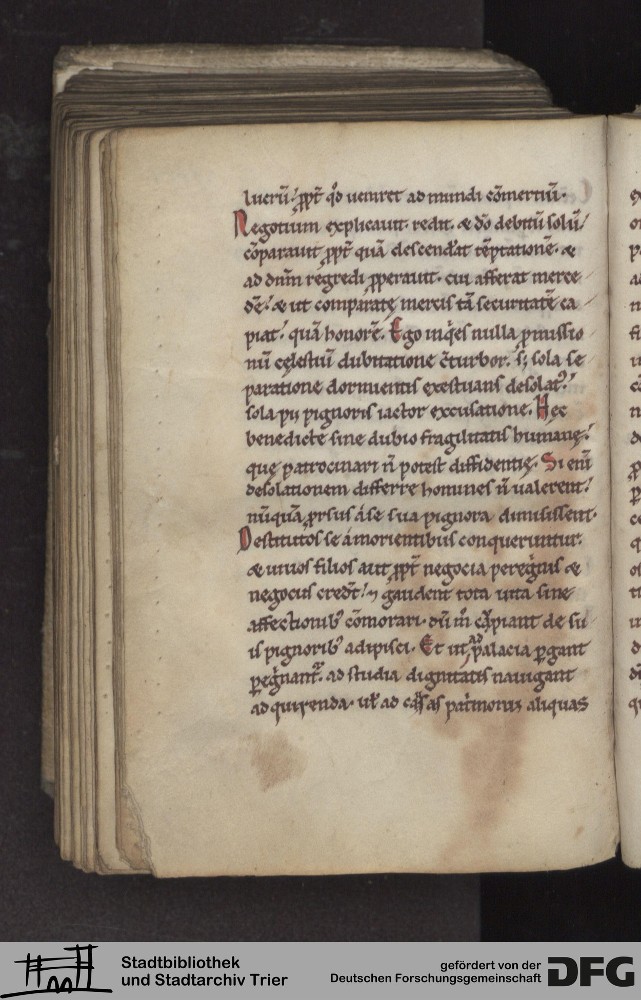 lucrũ. ꝓpt̃ qd̾ uenιret ad mundi cõmertiũ.
Negotium explicauit. redit. & dõ debitũ soluͥ/
cõparauit ꝓpt̃ quã descend̾at tẽptationẽ. &
ad dñm regredi ꝓperauit. cui afferat merce
dẽ. & ut comparatę mercis tã securitatẽ ca
piat. quã honorẽ. Ego inq̃es nulla ꝓmissio
nũ cęlestiũ dubitatione c̃turbor. sꝫ sola se
paratione dormientis exestuans desolat᷑.
sola pii pignoris iactor excusatione. Hec
benedicte sine dubio fragilitatis humanę.
quę patrocinari ñ potest diffidentię. Si eni͂
desolationem differre homines ñ ualerent.
nũquã ꝓrsus a se sua pignora dimisissent.
Destitutos se a morientibus conqueruntur.
& uiuos filios aut ꝓpt̃ negocia peregͥnis &
negociis credt̃. ⁊ gaudent tota uita sine
affectionibꝰ cõmorari. dũ m̃ cͣpiant de su
is pignoribꝰ adipisci. Et ut palacia ꝑgant
ꝑegͥnant᷑. ad studia dignitatis nauigant
adquirenda. ul̃ ad cassas pat̾monii aliquas
Stadtbibliothek
und Stadtarchiv Trier
gefördert von der
Deutschen Forschungsgemeinschaft
DFG